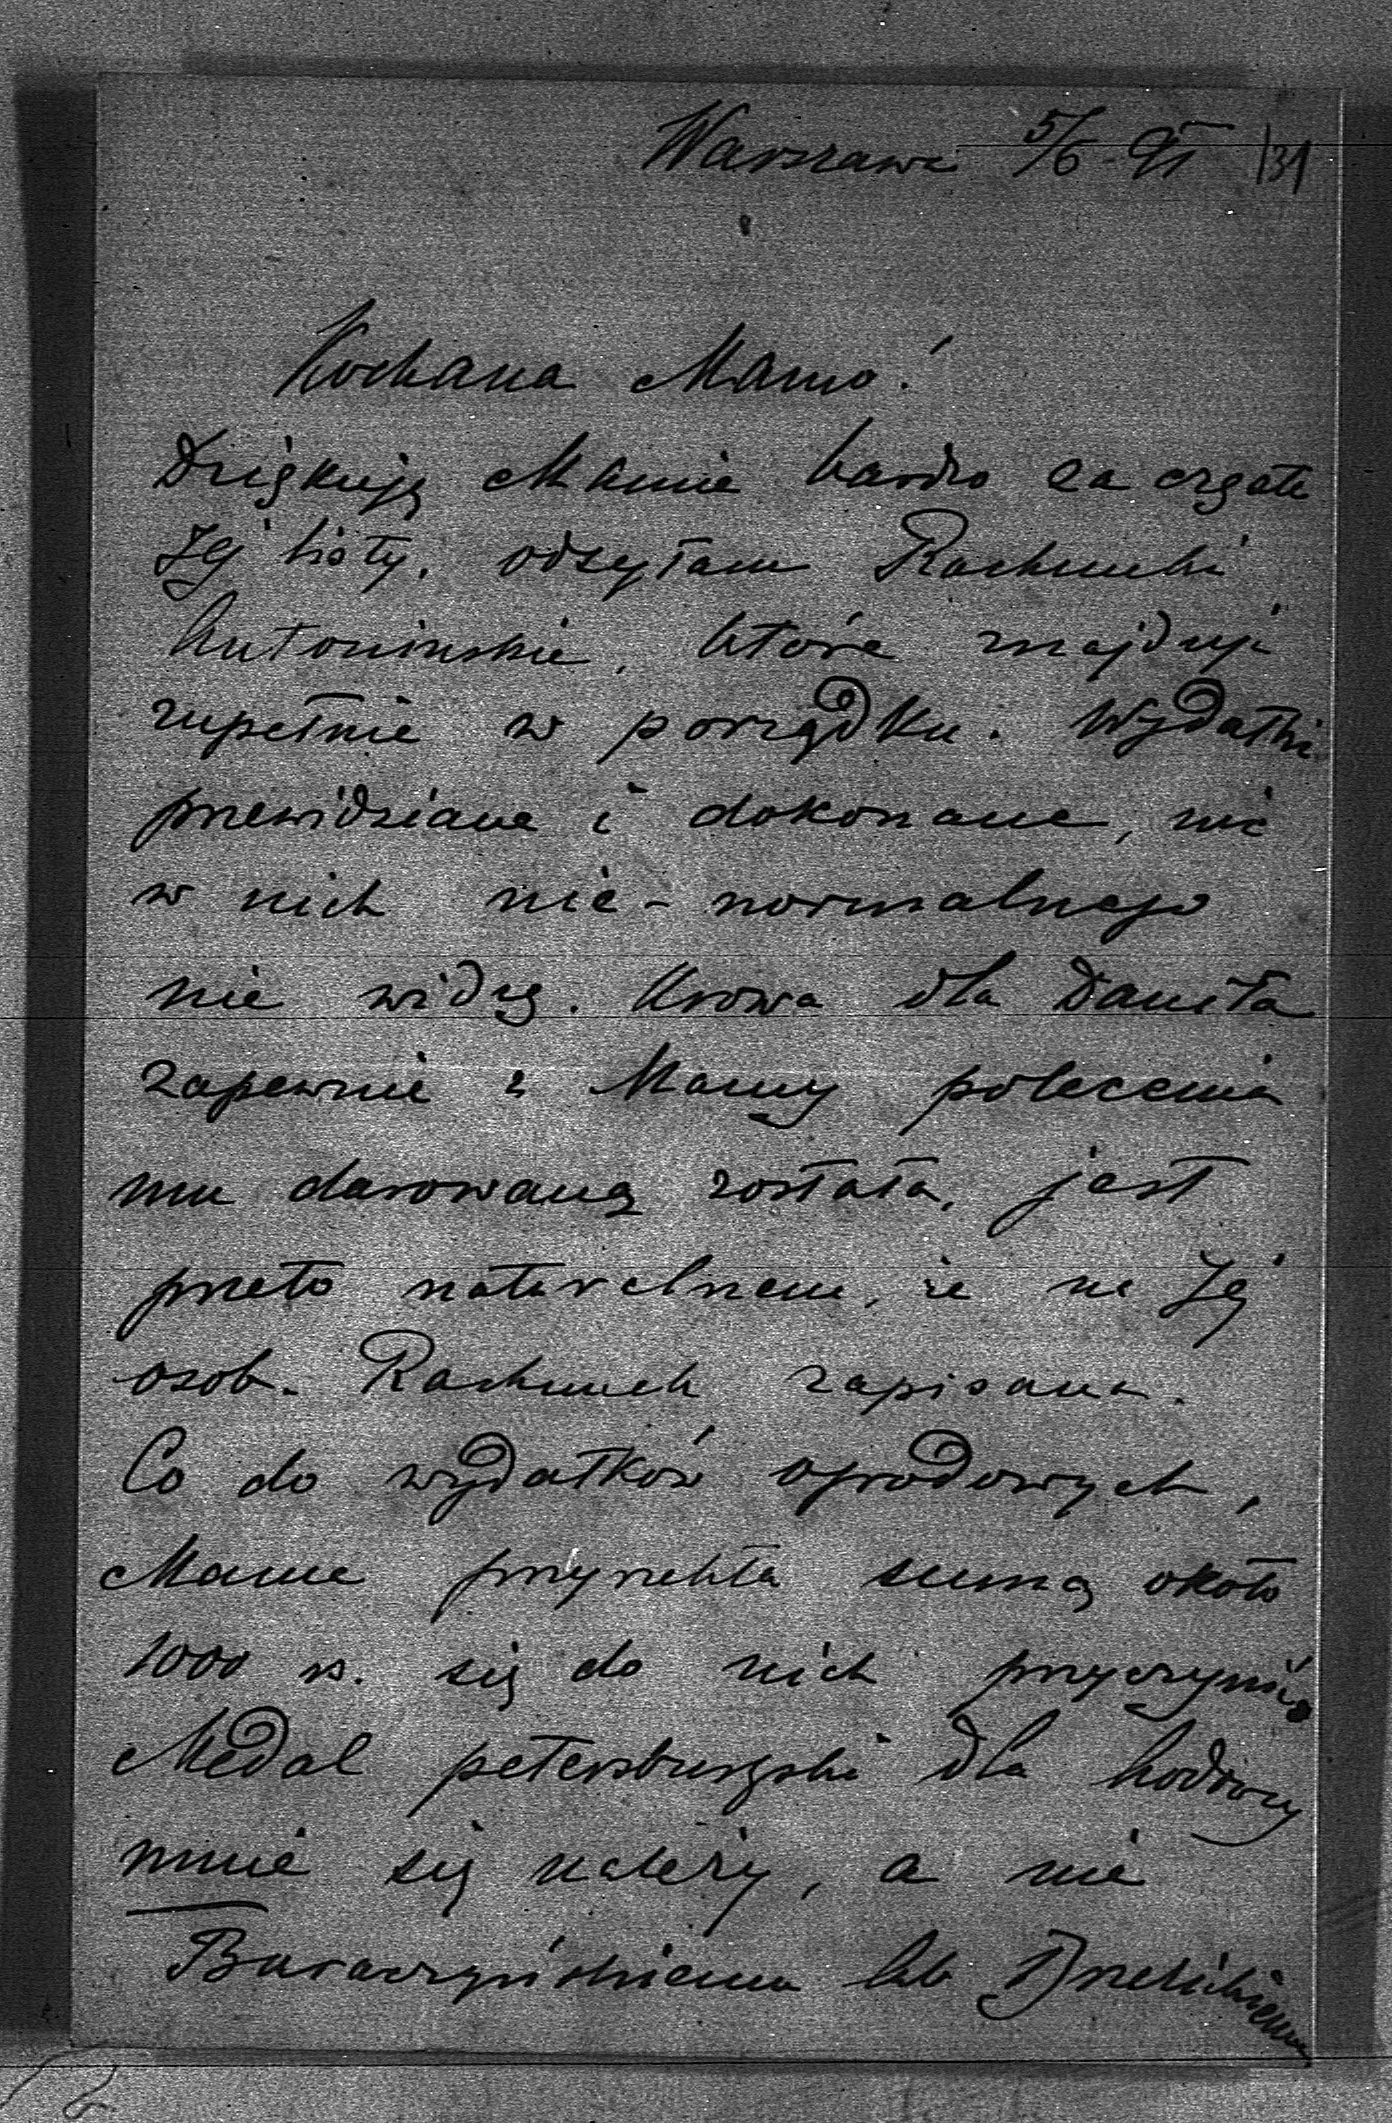 Warszawa 5/6 - 95 131
Kochana Mamo!
Dziękuję Mamie bardzo za częste
Jej listy, odsyłam Rachunki
Antonińskie, które znajduję
zupełnie w porządku. Wydatki
przewidziane i dokonane, nic
w nich nie-normalnego
nie widzę. Krowa dla Daneła
zapewnie z Mamy polecenia
mu darowaną została, jest
przeto naturalnem, że na Jej
osob. Rachunek zapisana.
Co do wydatków ogrodowych,
Mama przyrzekła sumą około
1000 rs. się do nich przyczynić
Medal petersburgski dla hodowcy
mnie się należy, a nie
lub